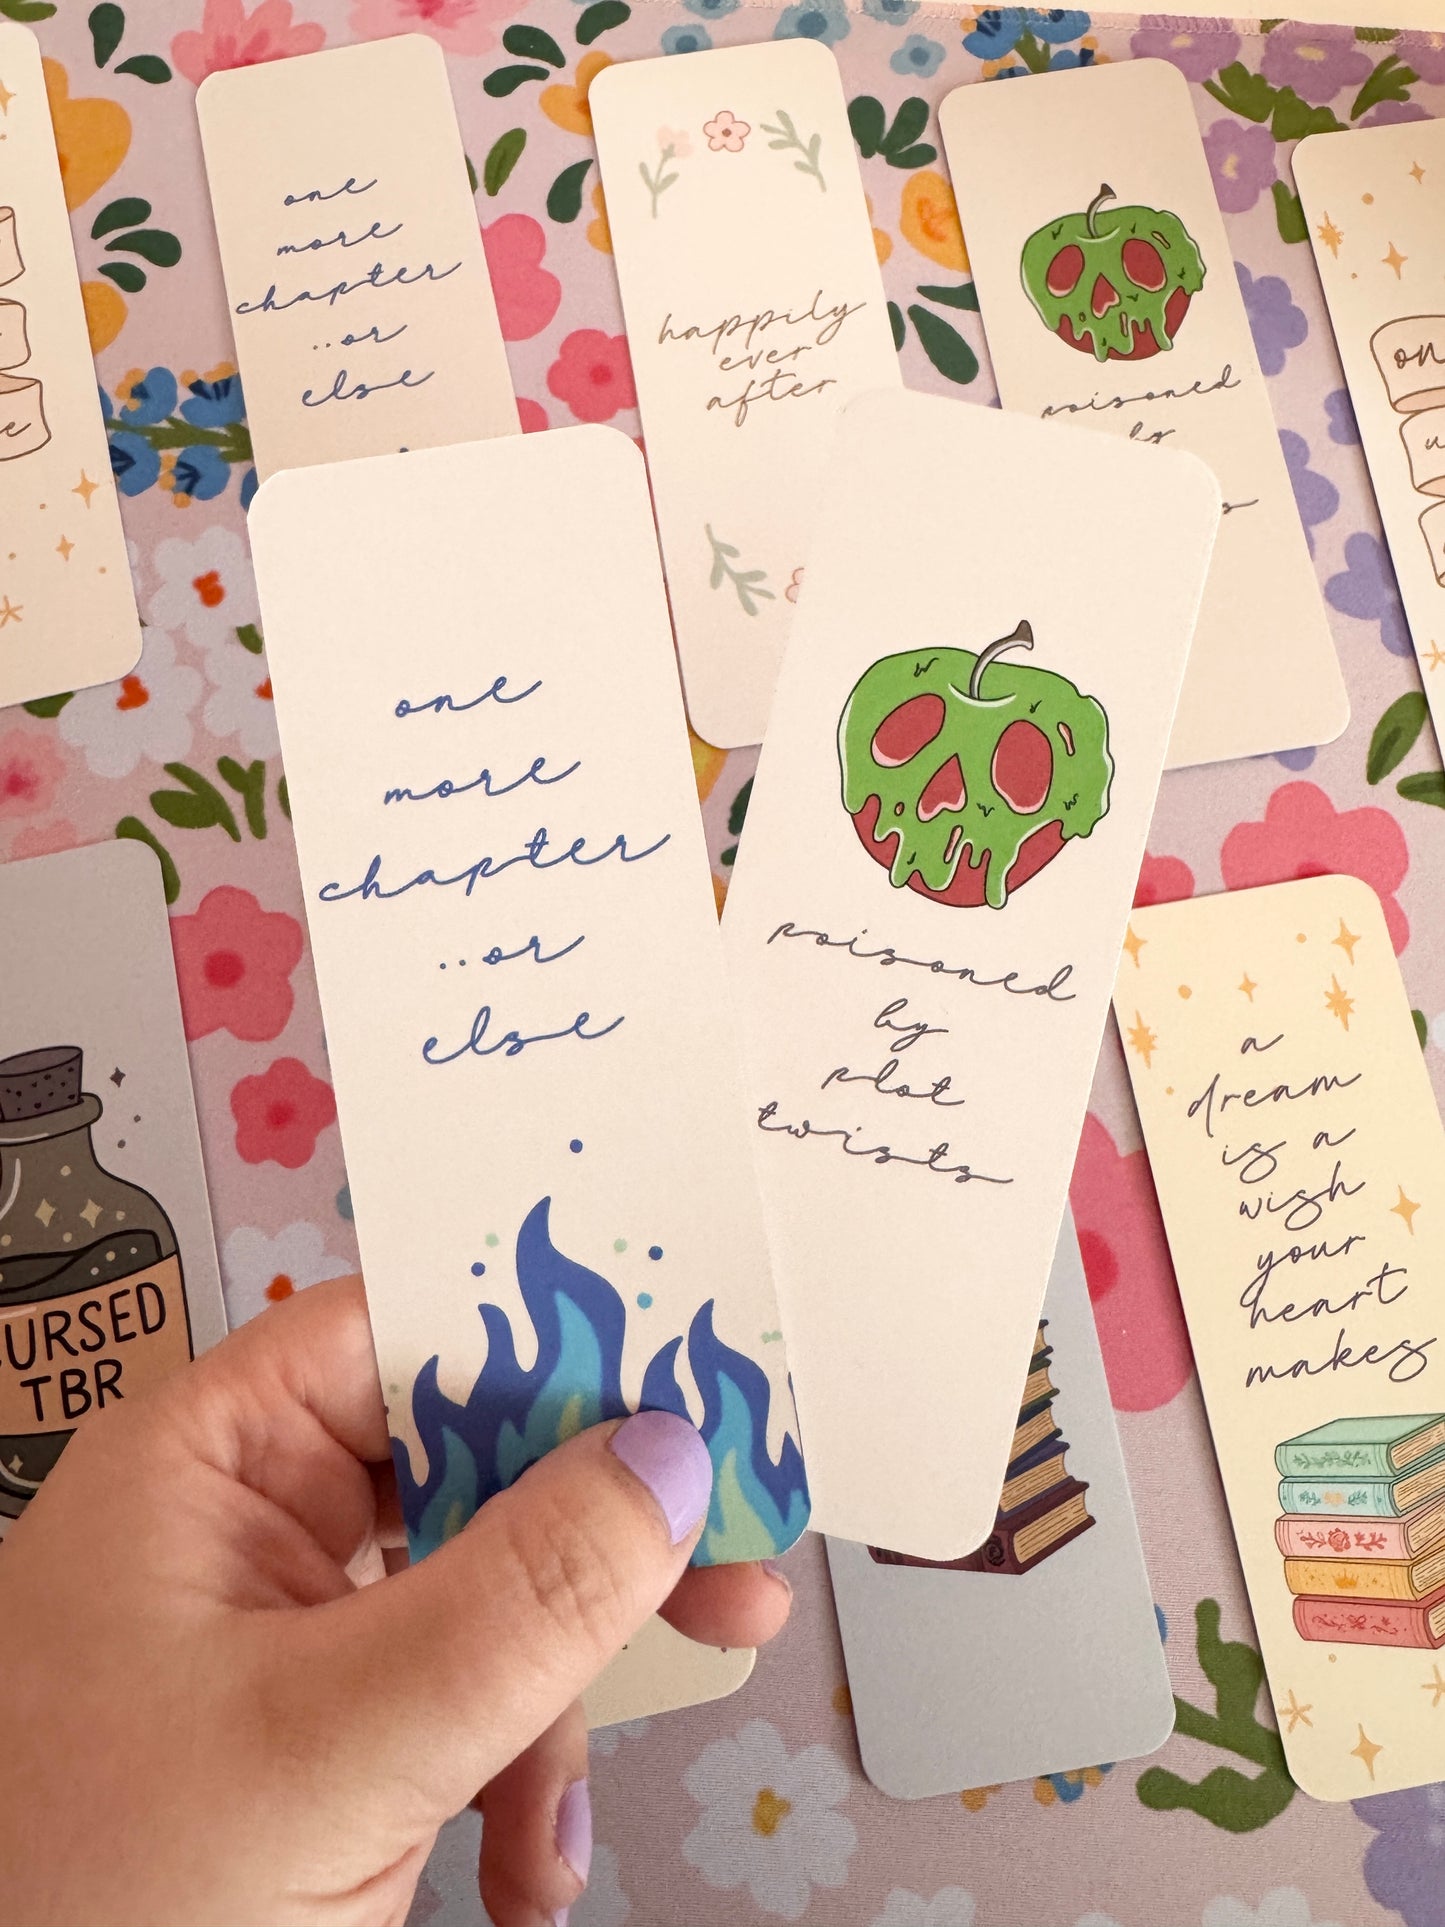 one
more
chapter
..or
else
happily
ever
after
poisoned
by
one
more
chapter
..or
else
poisoned
by
plot
twists
a
dream
is a
wish
your
heart
makes
CURSED
TBR